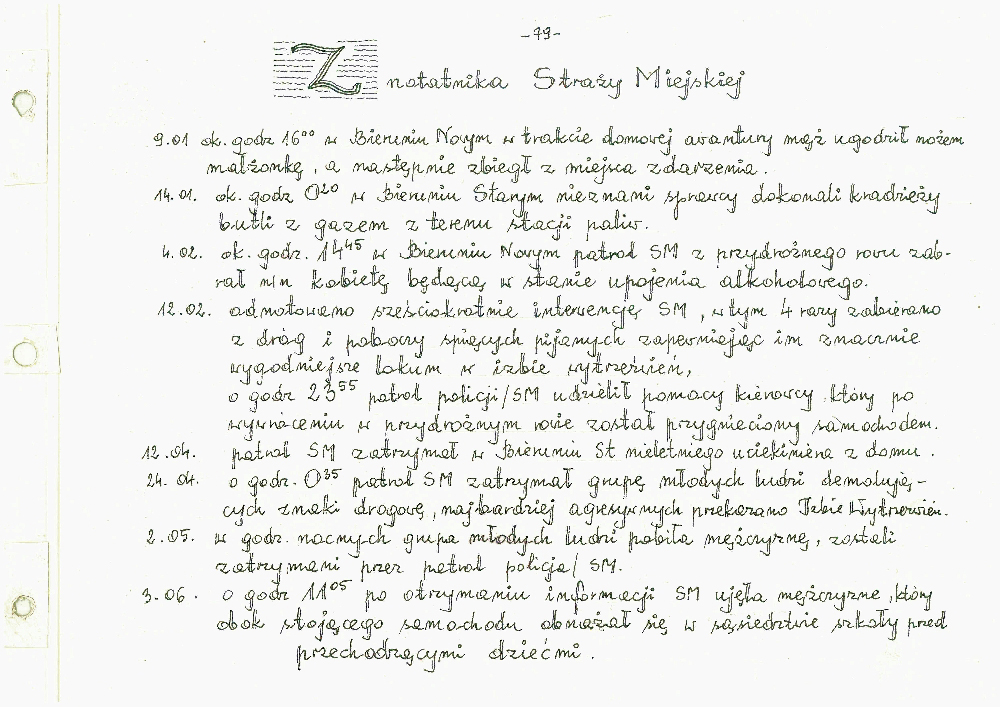 -79-
Z notatnika Straży Miejskiej
9.01 ok. godz 16⁰⁰ w Bieruniu Nowym w trakcie domowej awantury mąż ugodził nożem
małżonkę, a następnie zbiegł z miejsca zdarzenia.
14.01. ok. godz 0²⁰ w Bieruniu Starym nieznani sprawcy dokonali kradzieży
butli z gazem z terenu stacji paliw.
4.02. ok. godz. 14⁴⁵ w Bieruniu Nowym patrol SM z przydrożnego rowu zab-
rał n/n kobietę będącą w stanie upojenia alkoholowego.
12.02. odnotowano sześciokrotnie interwencję SM, w tym 4 razy zabierano
z dróg i poboczy śpiących pijanych zapewniając im znacznie
wygodniejsze lokum w izbie wytrzeźwień,
o godz 23⁵⁵ patrol policji/SM udzielił pomocy kierowcy który po
wywróceniu w przydrożnym rowie został przygnieciony samochodem.
12.04. patrol SM zatrzymał w Bieruniu St nieletniego uciekiniera z domu.
24.04. o godz. 0³⁵ patrol SM zatrzymał grupę młodych ludzi demolują-
cych znaki drogowe, najbardziej agresywnych przekazano Izbie Wytrzeźwień.
2.05. w godz. nocnych grupa młodych ludzi pobiła mężczyznę, zostali
zatrzymani przez patrol policja/SM.
3.06. o godz 11⁰⁵ po otrzymaniu informacji SM ujęła mężczyznę, który
obok stojącego samochodu obnażał się w sąsiedztwie szkoły przed
przechodzącymi dziećmi.